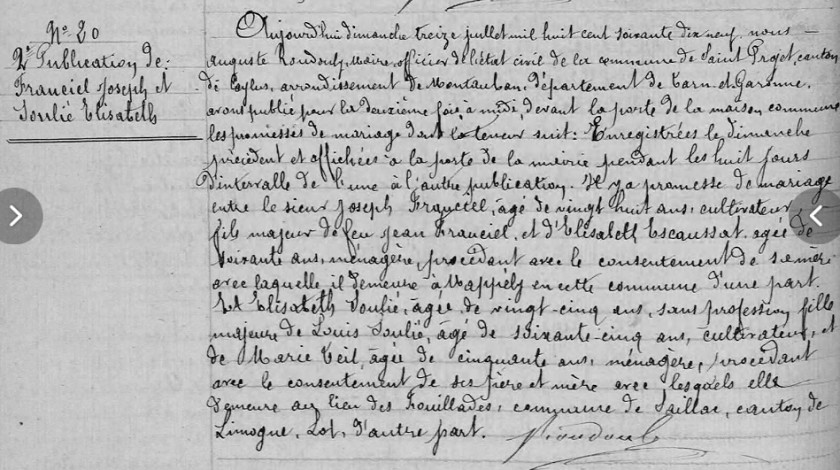 N° 20
2e Publication de:
Franciel Joseph et
Soulié Elisabeth
Aujourd'hui dimanche treize juillet mil huit cent soixante dix neuf, nous
Auguste Rondouly, Maire, officier de l'état civil de la commune de Saint Projet, canton
de Caylus, arrondissement de Montauban, Département de Tarn-et-Garonne,
avons publié pour la deuxième fois à midi, devant la porte de la maison commune
les promesses de mariage dont la teneur suit: Enregistrées le dimanche
précédent et affichées à la porte de la mairie pendant les huit jours
d'intervalle de l'une à l'autre publication. Il y a promesse de mariage
entre le sieur Joseph Franciel, âgé de vingt huit ans, cultivateur
fils majeur de feu Jean Franciel, et d'Elisabeth Escaussat, agée de
soixante ans, ménagère, procédant avec le consentement de sa mère
avec laquelle il demeure à Mappély en cette commune d'une part.
Et Elisabeth Soulié, âgée de vingt-cinq ans, sans profession fille
majeure de Louis Soulié, âgé de soixante-cinq ans, cultivateur, et
de Marie Teil, âgée de cinquante ans, ménagère, procédant
avec le consentement de ses père et mère avec lesquels elle
demeure au lieu des Fouillades, commune de Saillac, canton de
Limogne, Lot, d'autre part.